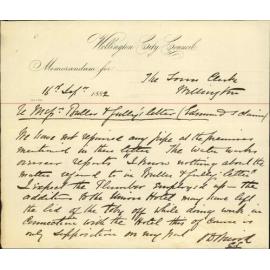 Wellington City Council
Memorandum for
The Town Clerk
Wellington
16th Sept. 1882
Re Messrs Buller & Gully's letter (Edmund's claim)
We have not repaired any pipe at the premises
mentioned in their letter. The Water works
overseer reports "I know nothing about the
matter referred to in Buller & Gully's letter"
I expect the Plumber employed up the
addition to the Union Hotel may have left
the lid of the Toby off while doing work in
connection with the Hotel this of course is
only supposition on my part